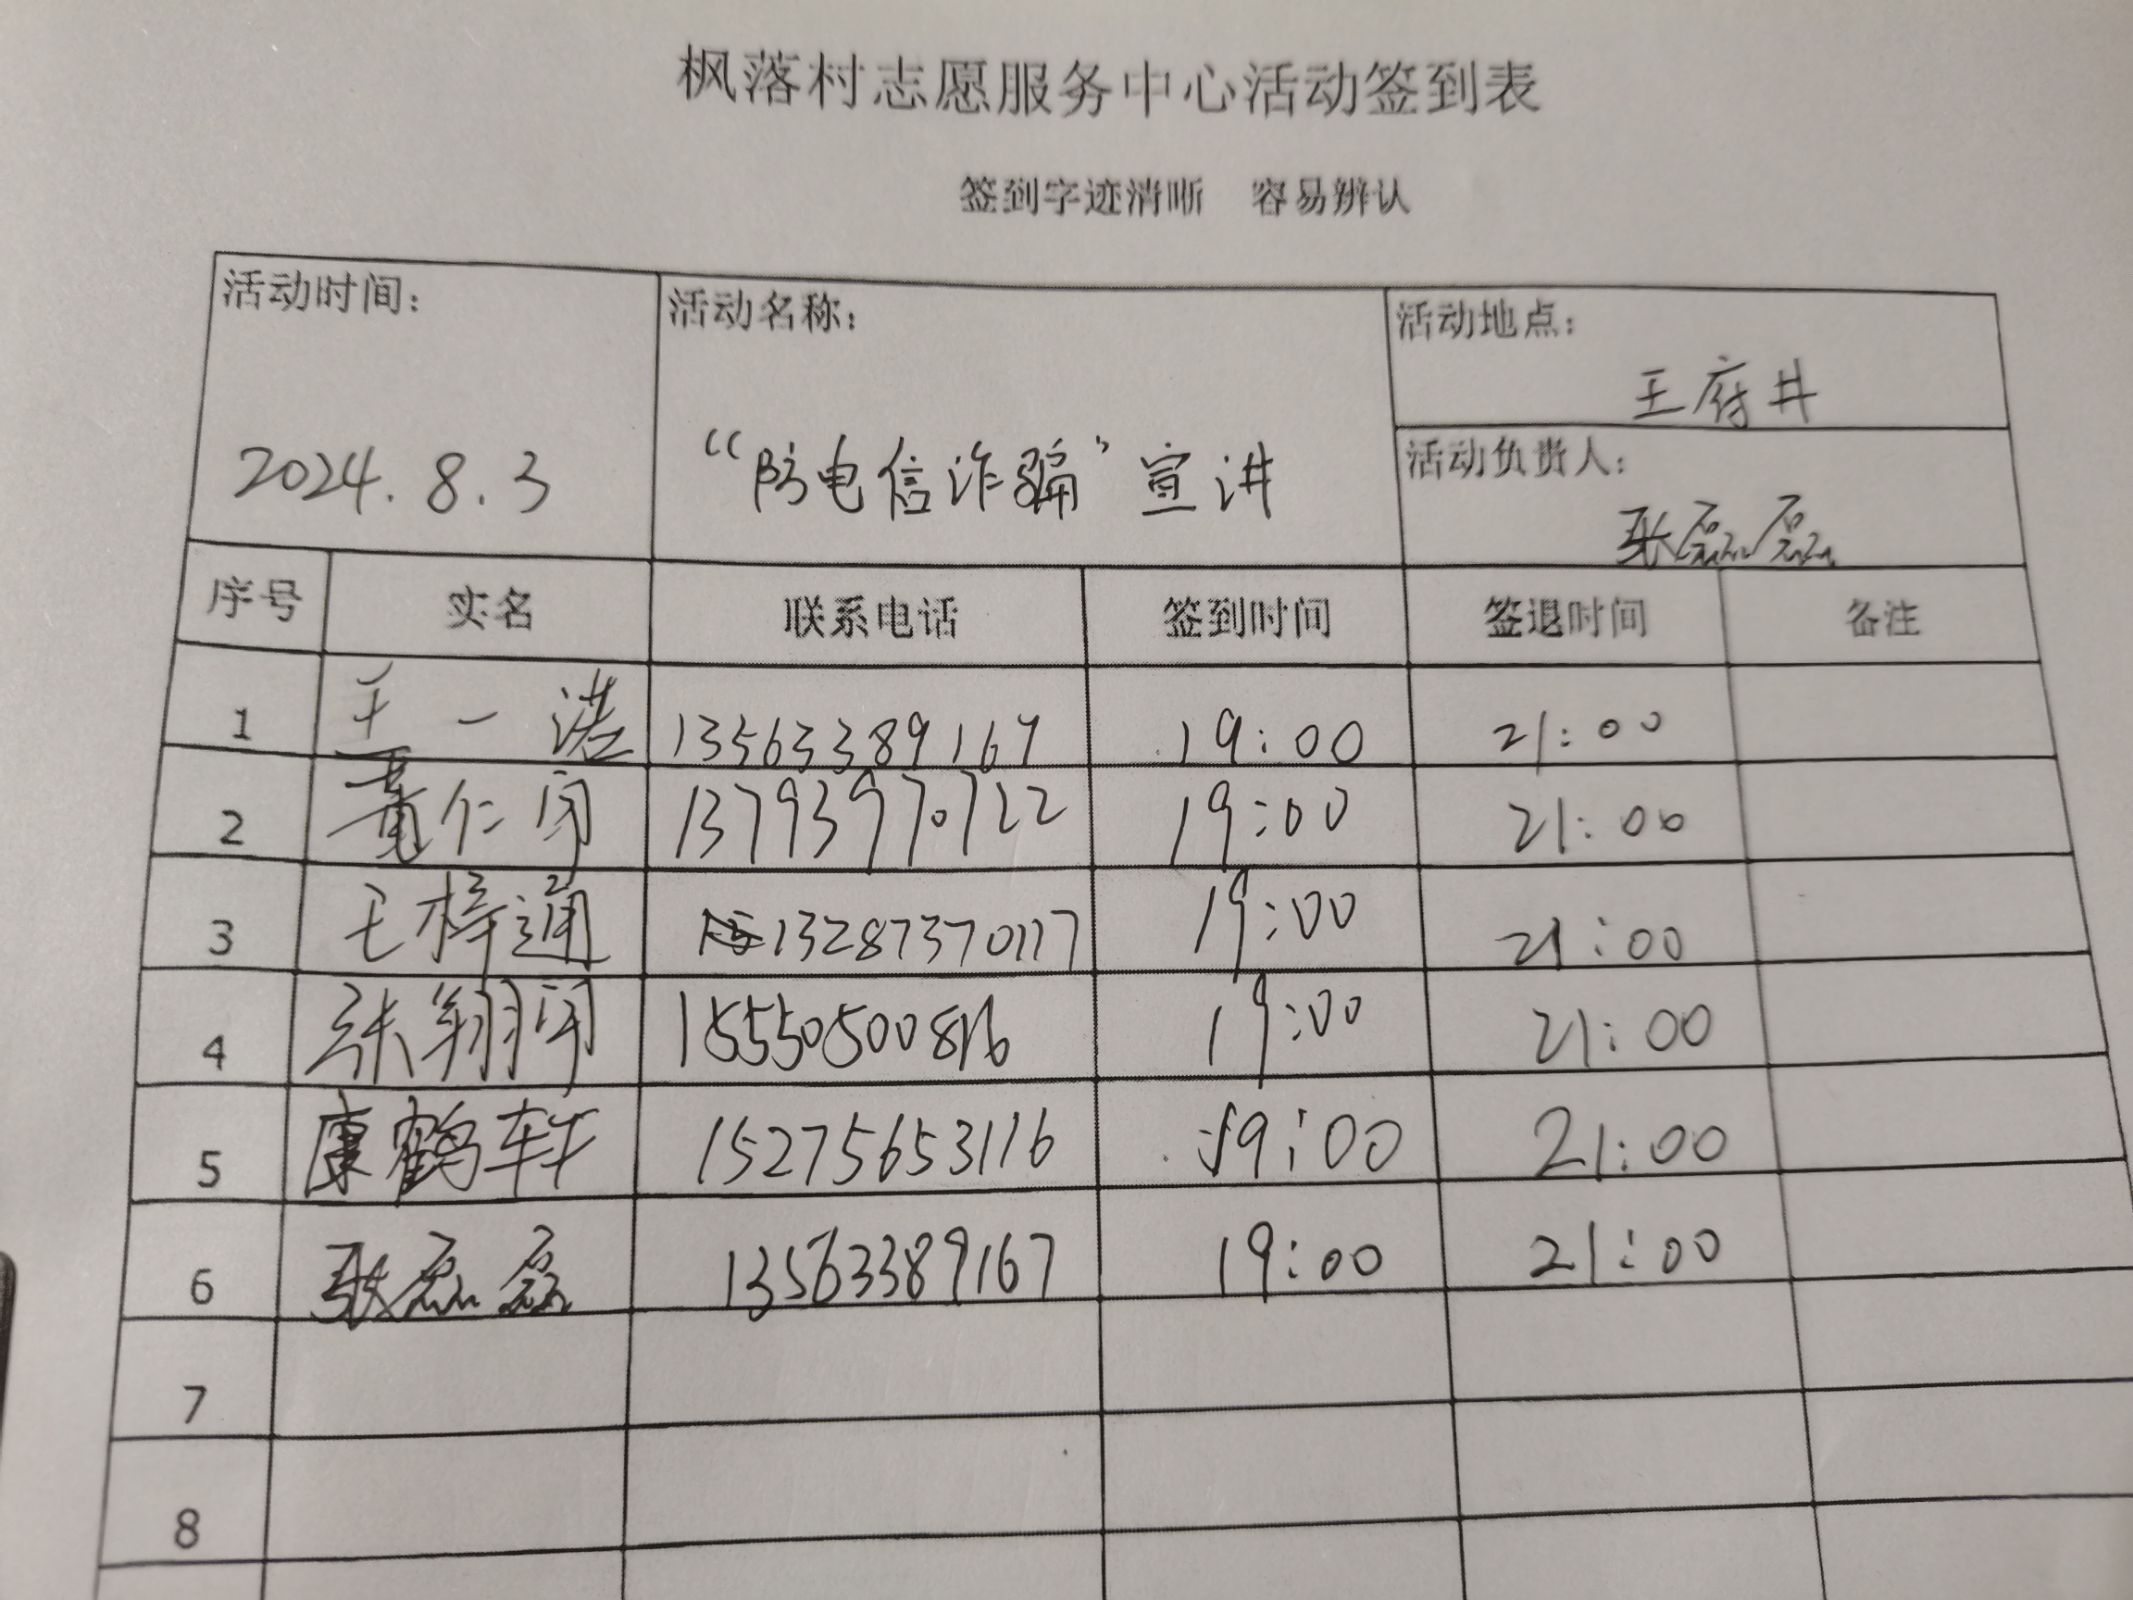 枫落村志愿服务中心活动签到表
签到字迹清晰 容易辨认
活动时间： 活动名称： 活动地点：
王府井
2024.8.3 “防电信诈骗”宣讲 活动负责人：
张磊磊
序号 实名 联系电话 签到时间 签退时间 备注
1 王一湛 13563389167 19:00 21:00
2 黄仁闯 13793970722 19:00 21:00
3 王梓通 13287370117 19:00 21:00
4 张翔闯 15550500816 19:00 21:00
5 康鹤轩 15275653116 19:00 21:00
6 张磊磊 13563389167 19:00 21:00
7
8